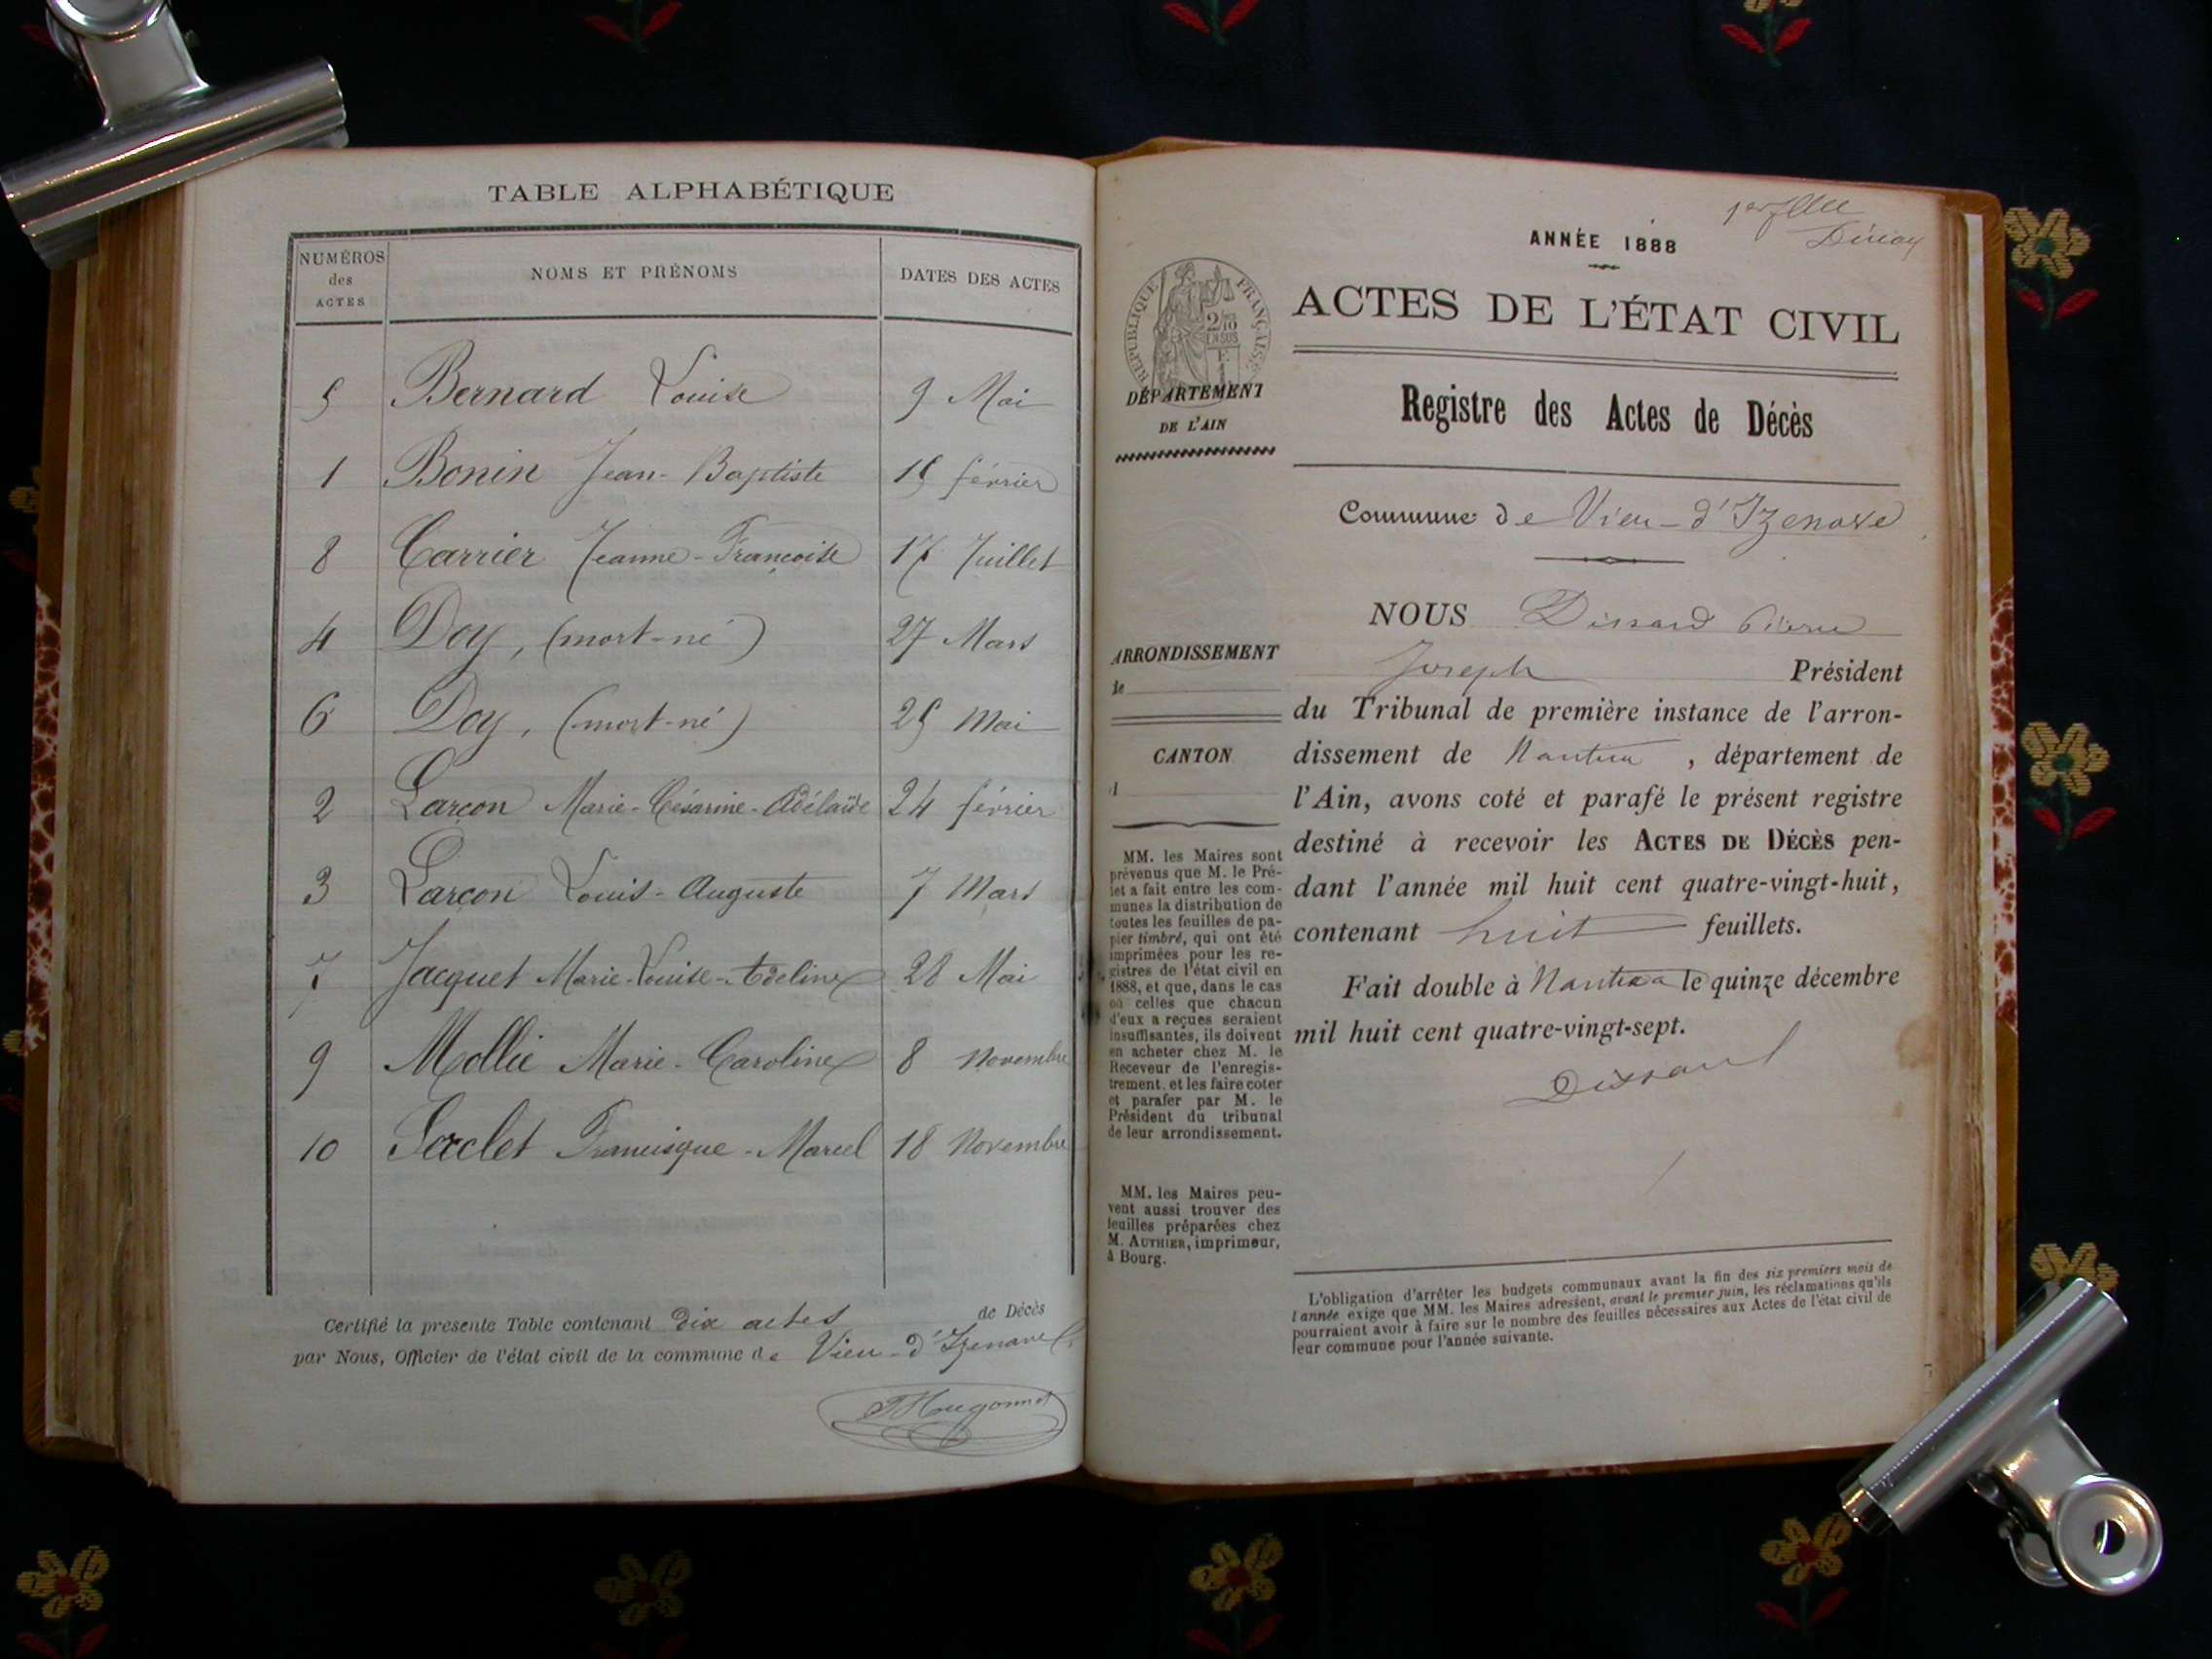 TABLE ALPHABÉTIQUE
NUMÉROS des ACTES NOMS ET PRÉNOMS DATES DES ACTES
5 Bernard Louise 9 Mai
1 Bonin Jean-Baptiste 15 février
8 Carrier Jeanne-Françoise 17 Juillet
4 Doy, (mort-né) 27 Mars
6 Doy, (mort-né) 25 Mai
2 Larçon Marie-Césarine-Adélaïde 24 février
3 Larçon Louis-Auguste 7 Mars
7 Jacquet Marie-Louise-Adeline 28 Mai
9 Mollie Marie-Caroline 8 Novembre
10 Francisque-Marcel 18 Novembre
Certifié la présente Table contenant dix actes de Décès
par Nous, Officier de l'état civil de la commune de Vieu-d'Izenave
Hugonnet
1er
ANNÉE 1888
ACTES DE L'ÉTAT CIVIL
RÉPUBLIQUE FRANÇAISE
2/10
EN SUS
DÉPARTEMENT
DE L'AIN
Registre des Actes de Décès
Commune de Vieu-d'Izenave
NOUS Dissard Pierre
Joseph Président
du Tribunal de première instance de l'arron-
dissement de Nantua, département de
l'Ain, avons coté et parafé le présent registre
destiné à recevoir les ACTES DE DÉCÈS pen-
dant l'année mil huit cent quatre-vingt-huit,
contenant huit feuillets.
Fait double à Nantua le quinze décembre
mil huit cent quatre-vingt-sept.
Dissard
ARRONDISSEMENT
de
CANTON
d
MM. les Maires sont
prévenus que M. le Pré-
fet a fait entre les com-
munes la distribution de
toutes les feuilles de pa-
pier timbré, qui ont été
imprimées pour les re-
gistres de l'état civil en
1888, et que, dans le cas
où celles que chacun
d'eux a reçues seraient
insuffisantes, ils doivent
en acheter chez M. le
Receveur de l'enregis-
trement, et les faire coter
et parafer par M. le
Président du tribunal
de leur arrondissement.
MM. les Maires peu-
vent aussi trouver des
feuilles préparées chez
M. AUTHIER, imprimeur,
à Bourg.
L'obligation d'arrêter les budgets communaux avant la fin des six premiers mois de
l'année exige que MM. les Maires adressent, avant le premier juin, les réclamations qu'ils
pourraient avoir à faire sur le nombre des feuilles nécessaires aux Actes de l'état civil de
leur commune pour l'année suivante.